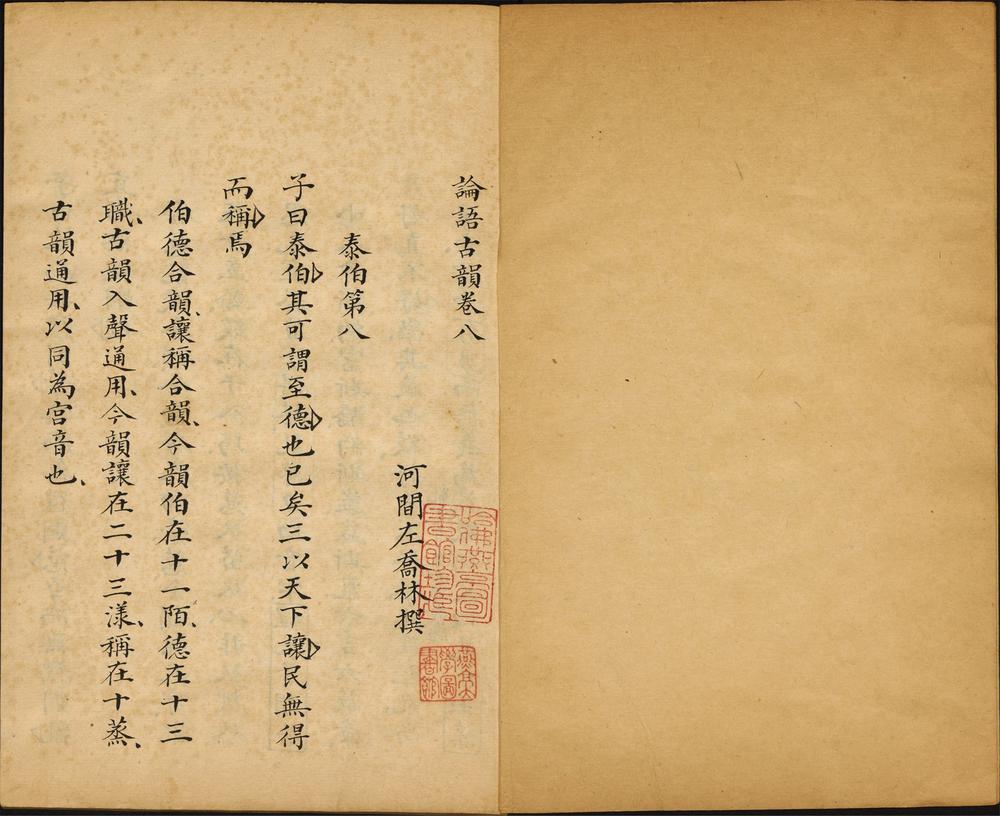 論語古韻卷八
河間左喬林撰
泰伯第八
子曰泰伯其可謂至德也已矣三以天下讓民無得
而稱焉
伯德合韻、讓稱合韻、今韻伯在十一陌、德在十三
職、古韻入聲通用、今韻讓在二十三漾、稱在十蒸、
古韻通用、以同為宮音也、
哈佛燕京圖書館珍藏
燕京大學圖書館